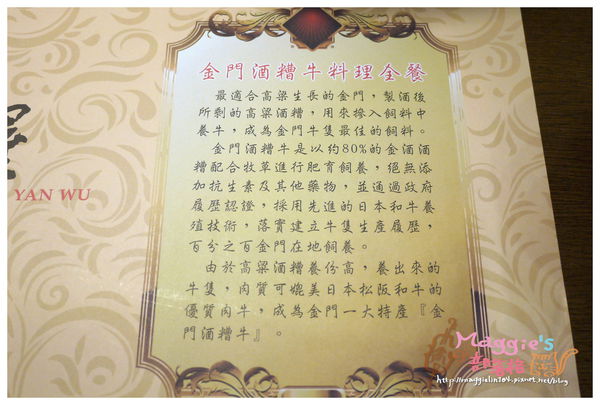 金門酒糟牛料理全餐
最適合高粱生長的金門，製酒後
所剩的高粱酒糟，用來摻入飼料中
養牛，成為金門牛隻最佳的飼料。
金門酒糟牛是以約80%的金酒酒
糟配合牧草進行肥育飼養，絕無添
加抗生素及其他藥物，並通過政府
履歷認證，採用先進的日本和牛養
殖技術，落實建立牛隻生產履歷，
百分之百金門在地飼養。
由於高粱酒糟養份高，養出來的
牛隻，肉質可媲美日本松阪和牛的
優質肉牛，成為金門一大特產『金
門酒糟牛』。
YAN WU
Maggie's
http://maggielin104.pixnet.net/blog